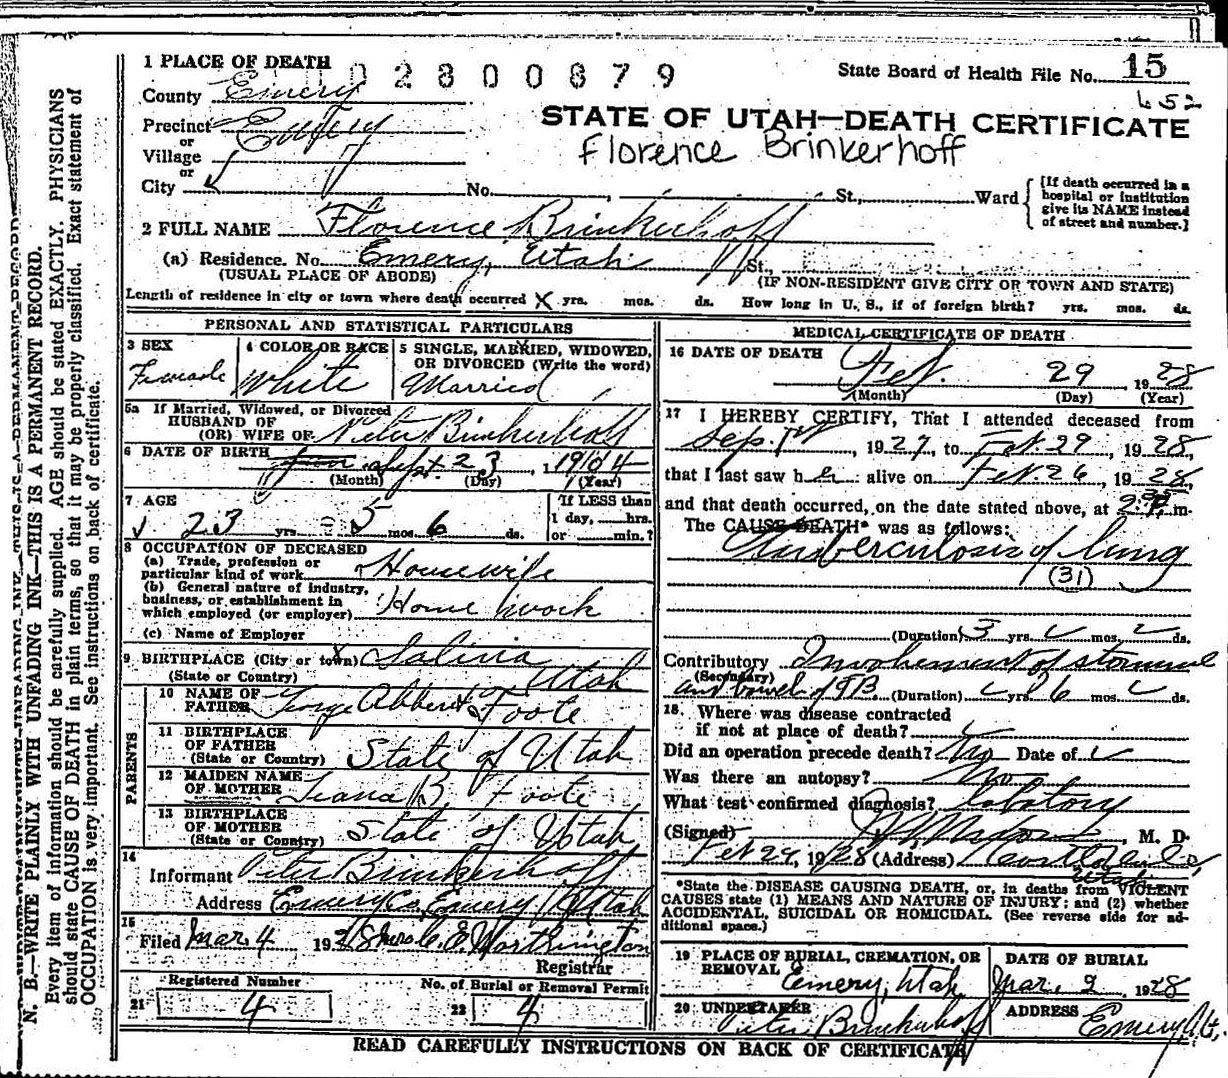 1 PLACE OF DEATH
002800879
State Board of Health File No. 15
652
County Emery
Precinct Emery
or
Village
or
City
STATE OF UTAH—DEATH CERTIFICATE
Florence Brinkerhoff
No. St., Ward
[If death occurred in a
hospital or institution
give its NAME instead
of street and number.]
2 FULL NAME Florence Brinkerhoff
(a) Residence. No. Emery, Utah St.,
(USUAL PLACE OF ABODE) (IF NON-RESIDENT GIVE CITY OR TOWN AND STATE)
Length of residence in city or town where death occurred X yrs. mos. ds. How long in U. S., if of foreign birth? yrs. mos. ds.
PERSONAL AND STATISTICAL PARTICULARS
3 SEX
Female
4 COLOR OR RACE
White
5 SINGLE, MARRIED, WIDOWED,
OR DIVORCED (Write the word)
Married
5a If Married, Widowed, or Divorced
HUSBAND OF
(OR) WIFE OF Peter Brinkerhoff
6 DATE OF BIRTH Sept. 23, 1904
(Month) (Day) (Year)
7 AGE
23 yrs. 5 mos. 6 ds.
If LESS than
1 day, hrs.
or min.?
8 OCCUPATION OF DECEASED
(a) Trade, profession or
particular kind of work Housewife
(b) General nature of industry,
business, or establishment in
which employed (or employer) Home work
(c) Name of Employer
9 BIRTHPLACE (City or town) Salina
(State or Country) Utah
PARENTS
10 NAME OF
FATHER George Abbert Foote
11 BIRTHPLACE
OF FATHER
(State or Country) State of Utah
12 MAIDEN NAME
OF MOTHER B, Foote
13 BIRTHPLACE
OF MOTHER
(State or Country) State of Utah
14
Informant Peter Brinkerhoff
Address Emery Co, Emery Utah
15
Filed Mar. 4 1928 Mrs. C. E. Worthington
Registrar
Registered Number
21 4
No. of Burial or Removal Permit
22 4
MEDICAL CERTIFICATE OF DEATH
16 DATE OF DEATH
Feb. 29, 1928
(Month) (Day) (Year)
17 I HEREBY CERTIFY, That I attended deceased from
Sep. 1st, 1927, to Feb. 29, 1928,
that I last saw her alive on Feb. 26, 1928,
and that death occurred, on the date stated above, at m.
The CAUSE DEATH* was as follows:
Tuberculosis of lung
(31)
(Duration) 3 yrs. mos. ds.
Contributory Involvement of stomach
(Secondary)
and bowel of TB. (Duration) yrs. 6 mos. ds.
18 Where was disease contracted
if not at place of death?
Did an operation precede death? No Date of
Was there an autopsy? No
What test confirmed diagnosis? labatory
(Signed) , M. D.
Feb 29, 1928 (Address) Castle Dale,
Utah
*State the DISEASE CAUSING DEATH, or, in deaths from VIOLENT
CAUSES state (1) MEANS AND NATURE OF INJURY; and (2) whether
ACCIDENTAL, SUICIDAL OR HOMICIDAL. (See reverse side for ad-
ditional space.)
19 PLACE OF BURIAL, CREMATION, OR
REMOVAL Emery, Utah
DATE OF BURIAL
Mar. 2 1928
20 UNDERTAKER
Peter Brinkerhoff
ADDRESS Emery, Ut.
READ CAREFULLY INSTRUCTIONS ON BACK OF CERTIFICATE
N. B.—WRITE PLAINLY WITH UNFADING INK—THIS IS A PERMANENT RECORD.
Every item of information should be carefully supplied. AGE should be stated EXACTLY. PHYSICIANS
should state CAUSE OF DEATH in plain terms, so that it may be properly classified. Exact statement of
OCCUPATION is very important. See instructions on back of certificate.